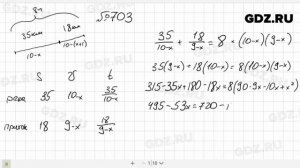 GDZ.RU
8ч
№703
35км 18км
10-x 10-(x+1)
35/(10-x) + 18/(9-x) = 8 × (10-x)(9-x)
S υ t
35(9-x) + 18(10-x) = 8(10-x)(9-x)
река 35 10-x 35/(10-x)
315-35x+180-18x = 8(90-9x-10x+x²)
495-53x = 720-
приток 18 9-x 18/(9-x)
GDZ.RU
GDZ.RU